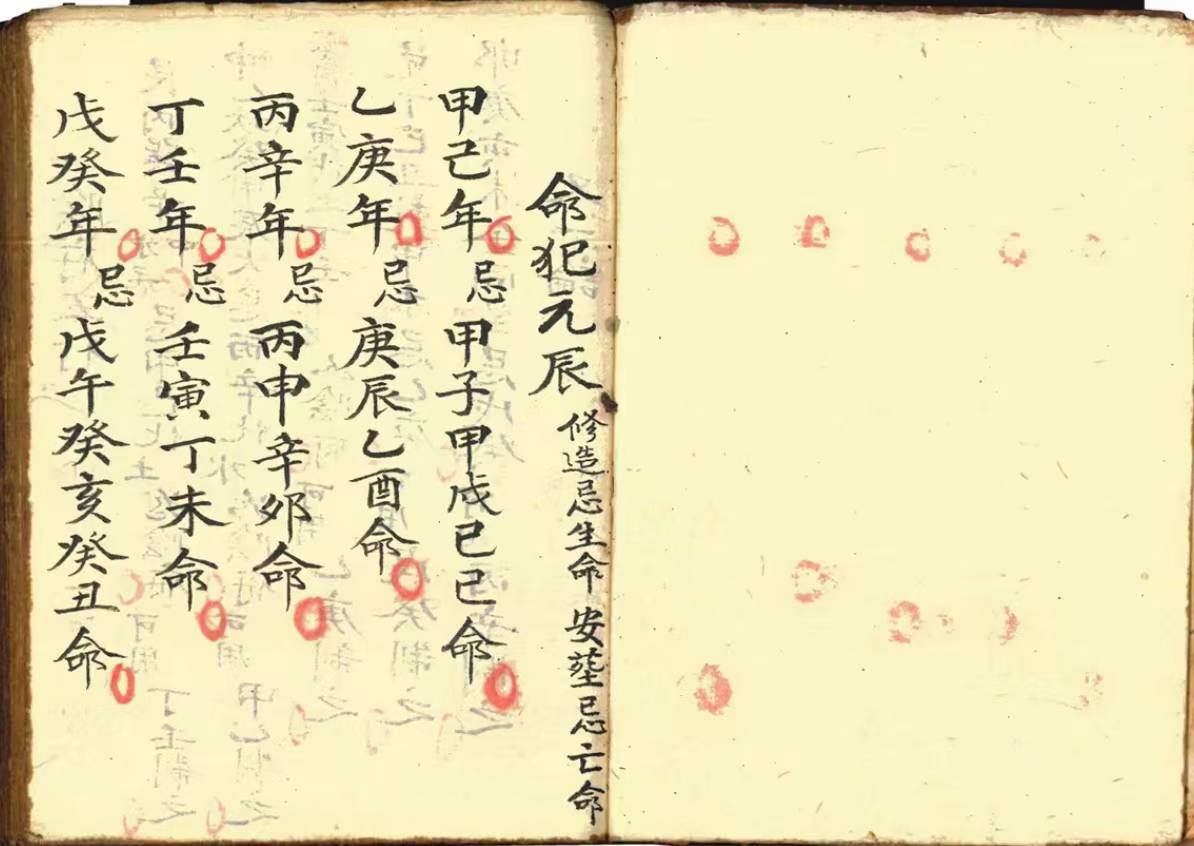 命犯元辰 修造忌生命 安塟忌亡命
甲己年忌甲子甲戌己巳命
乙庚年忌庚辰乙酉命
丙辛年忌丙申辛夘命
丁壬年忌壬寅丁未命
戊癸年忌戊午癸亥癸丑命